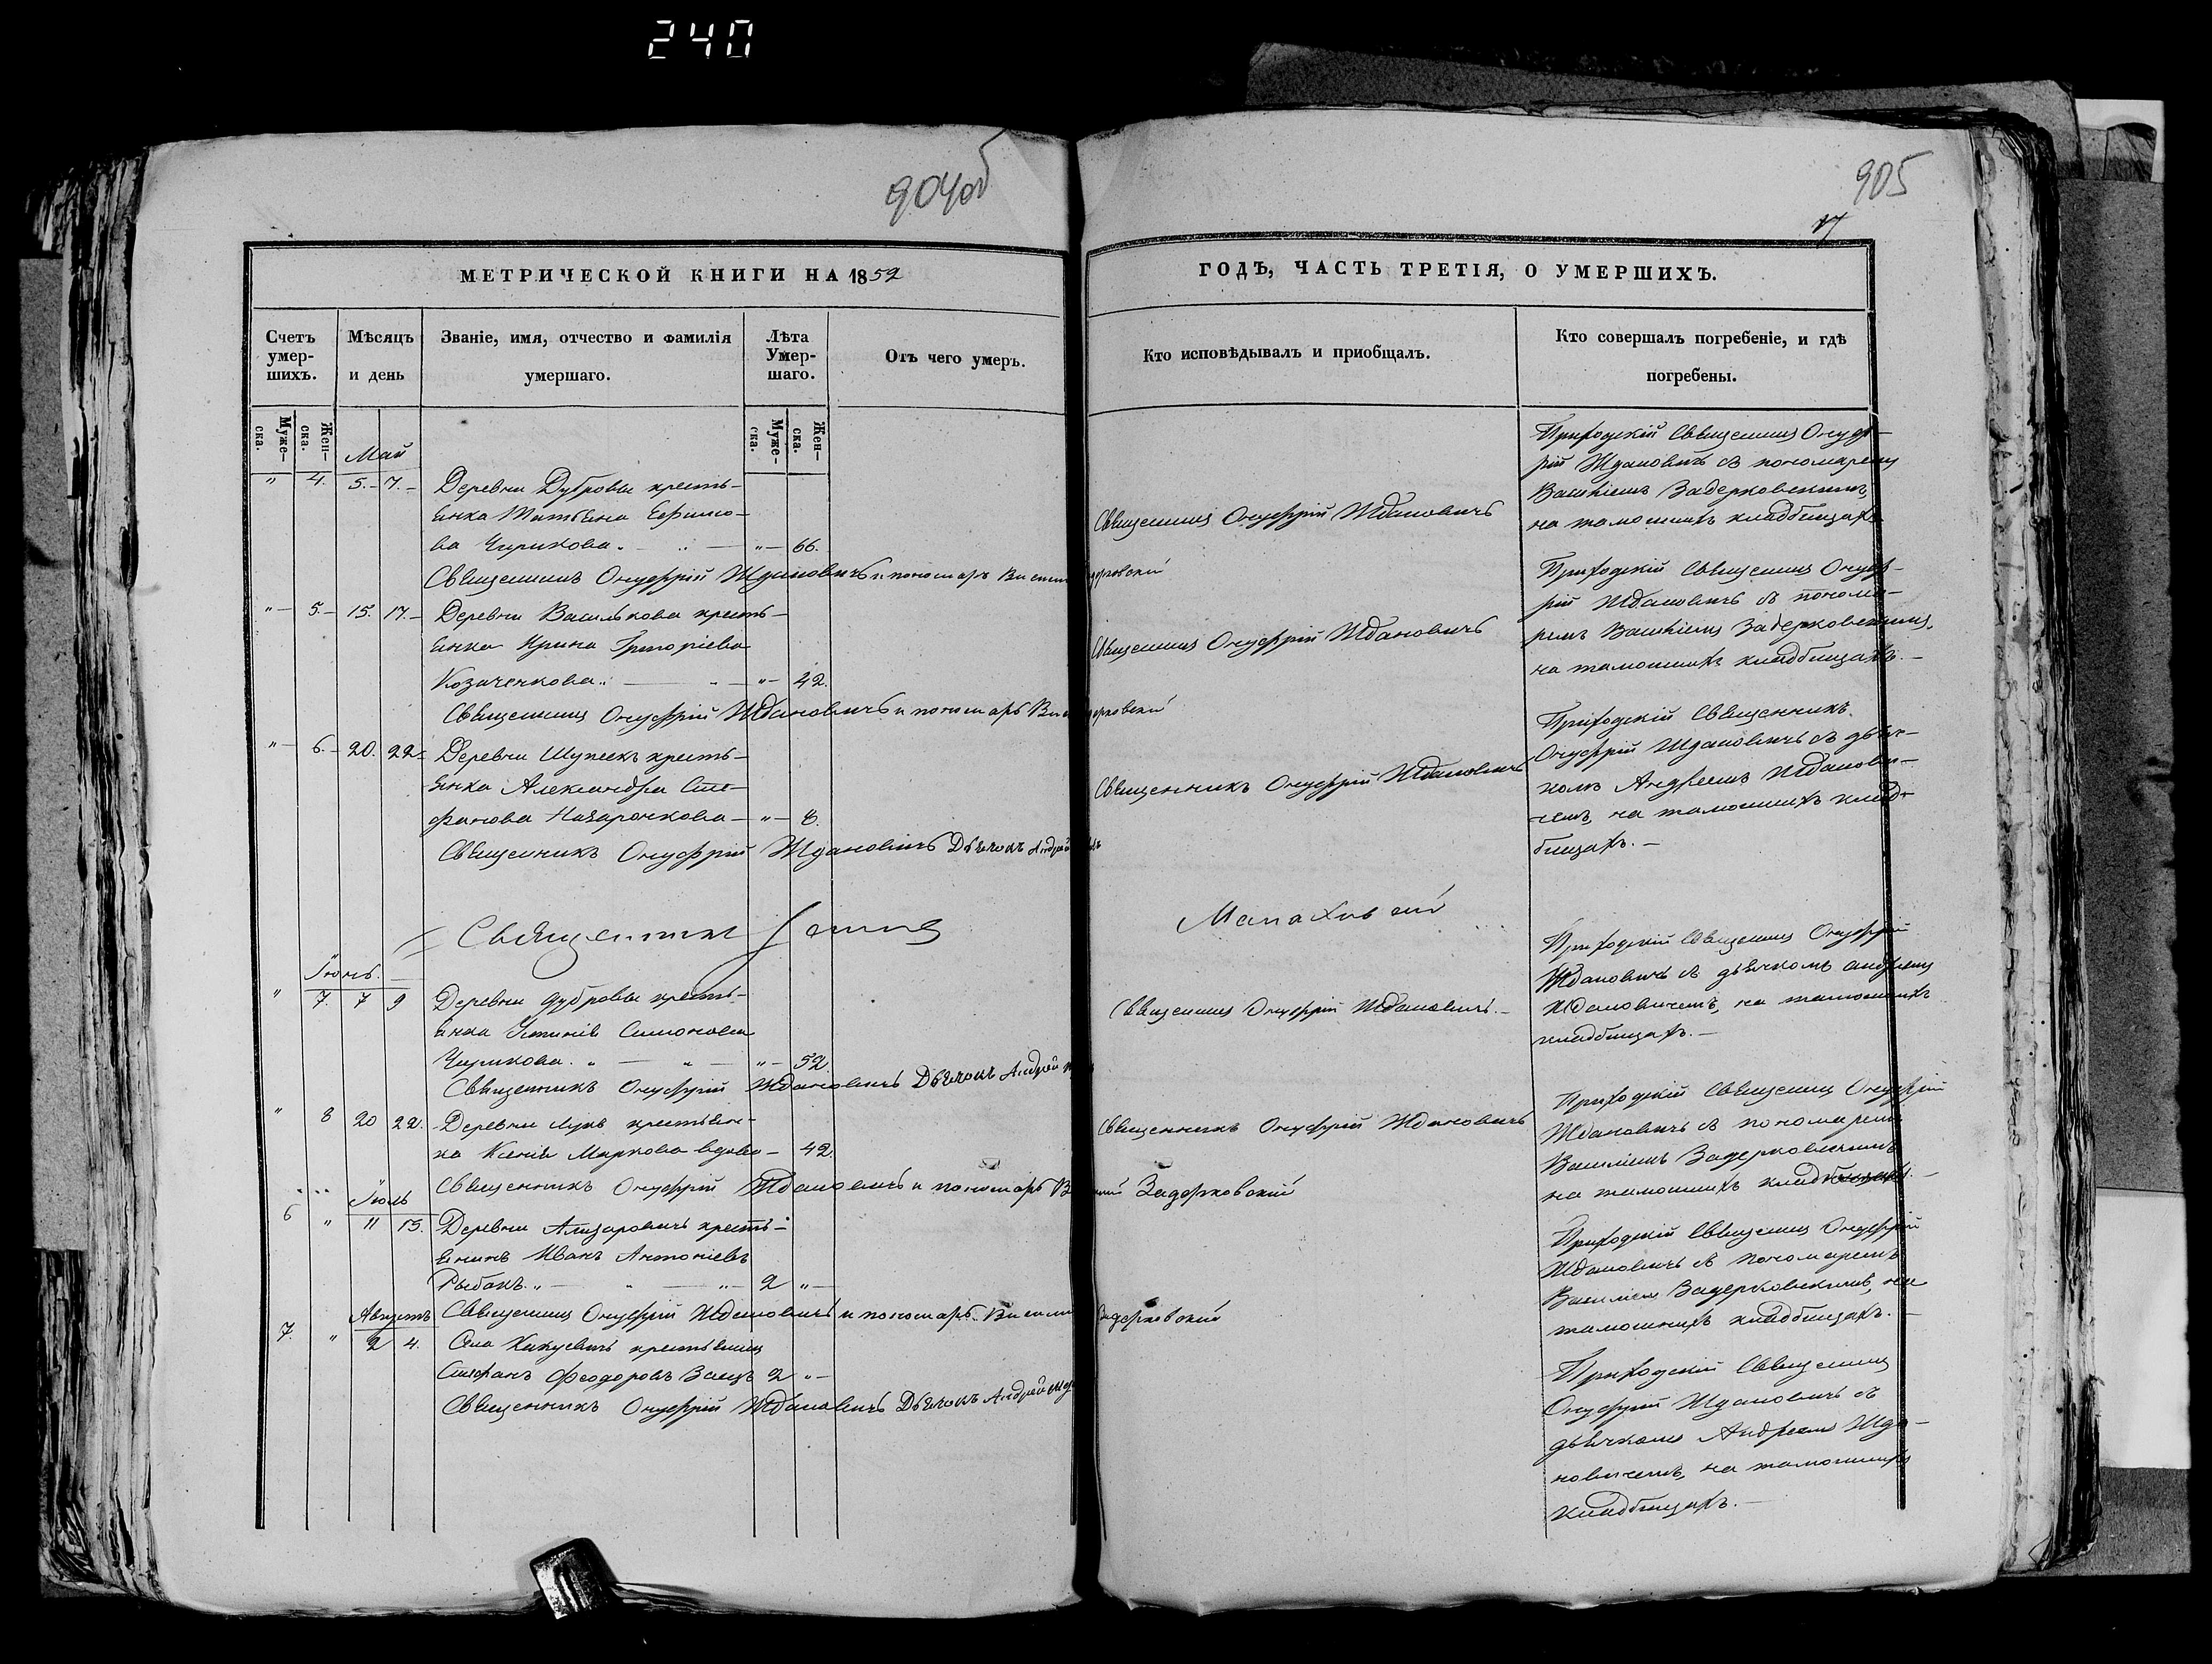 240
904об
905
МЕТРИЧЕСКОЙ КНИГИ НА 1852
ГОДЪ, ЧАСТЬ ТРЕТІЯ, О УМЕРШИХЪ.
Счетъ умер-шихъ.
Мѣсяцъ и день
Званіе, имя, отчество и фамилія умершаго.
Лѣта Умер-шаго.
Отъ чего умеръ.
Кто исповѣдывалъ и приобщалъ.
Кто совершалъ погребеніе, и гдѣ погребены.
Муже-ска.
Жен-ска.
Муже-ска.
Жен-ска.
Май
" 4. 5.- 7.- Деревни Дубровы кресть-
янка Татьяна Ефимо-
ва Чирикова. " 66.
Священникъ Онуфрій Ждановичъ
Приходскій Священникъ Онуф-
рій Ждановичъ съ пономаремъ
Василіемъ Задерковскимъ,
на тамошнихъ кладбищахъ
Священникъ Онуфрій Ждановичъ и пономарь
" 5.- 15. 17.- Деревни Василькова кресть-
янка Ирина Григоріева
Козаченкова. " 42.
Священникъ Онуфрій Ждановичъ
Приходскій Священникъ Онуф-
рій Ждановичъ съ понома-
ремъ Василіемъ Задерковскимъ,
на тамошнихъ кладбищахъ.
Священникъ Онуфрій Ждановичъ и пономарь
" 6.- 20. 22. Деревни кресть-
янка Александра Сте-
фанова Назарочкова " 8.
Священникъ Онуфрій Ждановичъ
Приходскій Священникъ
Онуфрій Ждановичъ съ дьяч-
комъ Андреемъ Жданови-
чемъ, на тамошнихъ клад-
бищахъ.
Священникъ Онуфрій Ждановичъ Дьячокъ Андрей
Священникъ
Іюнь.
" 7. 7 9 Деревни Дубровы кресть-
янка Устинія Симонова
Чирикова. " 52.
Священникъ Онуфрій Ждановичъ.
Приходскій Священникъ Онуфрій
Ждановичъ съ дьячкомъ Андреемъ
Ждановичемъ, на тамошнихъ
кладбищахъ.
Священникъ Онуфрій Ждановичъ Дьячокъ Андрей
" 8 20 22. Деревни крестьян-
ка Ксенія Маркова вдова 42.
Священникъ Онуфрій Ждановичъ
Приходскій Священникъ Онуфрій
Ждановичъ съ пономаремъ
Василіемъ Задерковскимъ
на тамошнихъ кладбищахъ.
Священникъ Онуфрій Ждановичъ и пономарь Задерковскій
Іюль
6 " 11 13. Деревни кресть-
янинъ Иванъ Антоніевъ
Рыбакъ. 2 "
Приходскій Священникъ Онуфрій
Ждановичъ съ пономаремъ
Василіемъ Задерковскимъ, на
тамошнихъ кладбищахъ.
Священникъ Онуфрій Ждановичъ и пономарь Задерковскій
Августъ
7. " 2 4. Села крестьянинъ
Стефанъ Феодоровъ Заецъ 2 "
Приходскій Священникъ
Онуфрій Ждановичъ съ
дьячкомъ Андреемъ Жда-
новичемъ, на тамошнихъ
кладбищахъ.
Священникъ Онуфрій Ждановичъ Дьячокъ Андрей